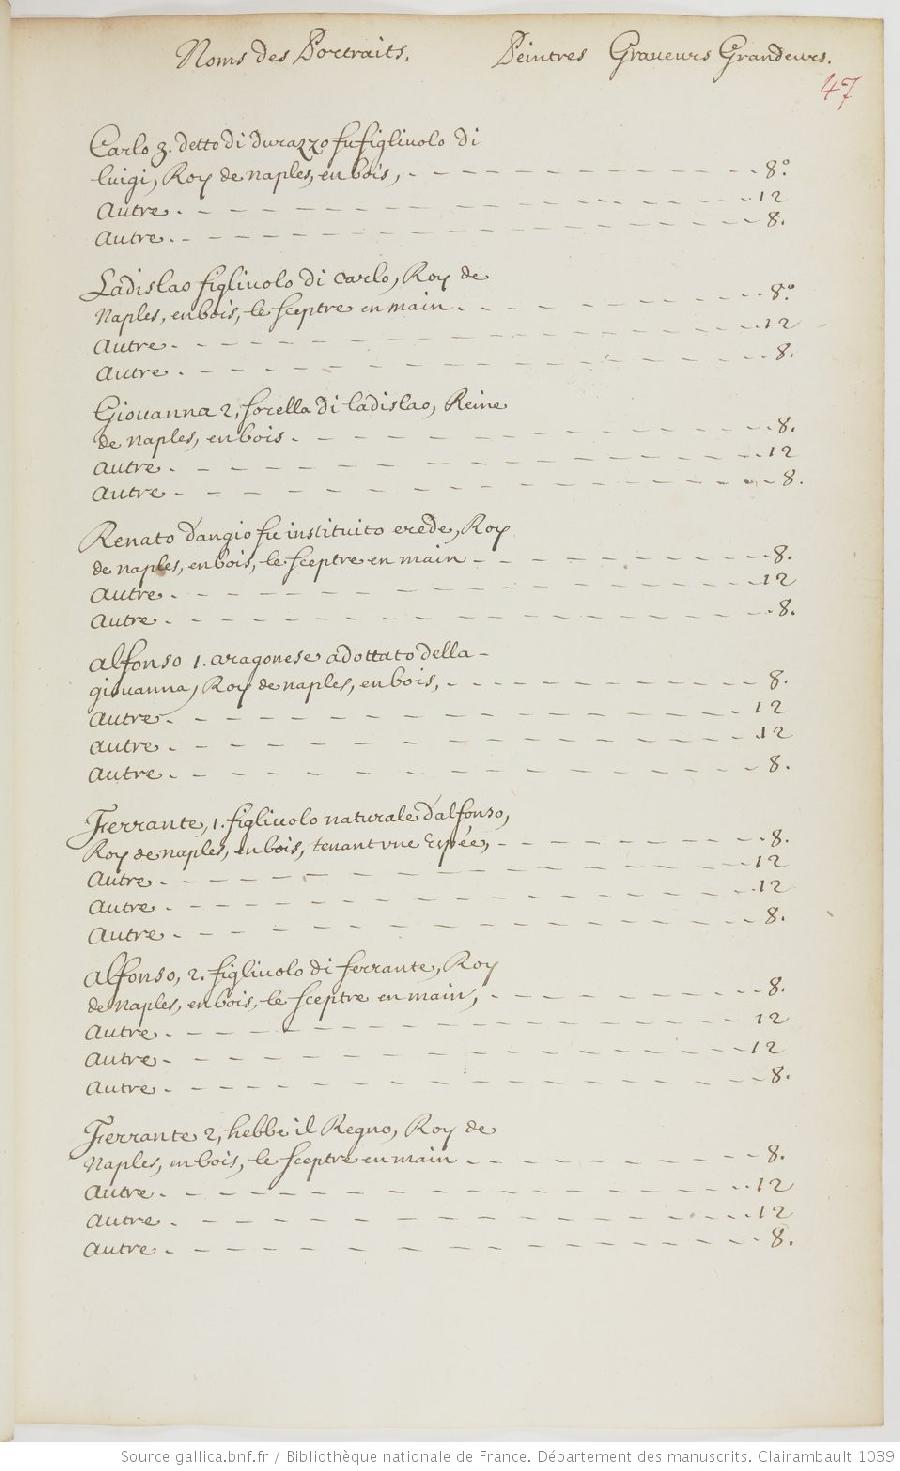 Noms des Portraits. Peintres Graveurs Grandeurs.
47
Carlo 3. detto di durazzo fu figliuolo di
luigi, Roy de naples, en bois, - - - 8.º
Autre - - - 12
Autre - - - 8.
Ladislao figliuolo di Carlo, Roy de
Naples, en bois, le sceptre en main - - - 8.º
Autre - - - 12
Autre - - - 8.
Giouanna 2, sorella di ladislao, Reine
de naples, en bois - - - 8.
Autre - - - 12
Autre - - - 8.
Renato d'angio fu instituito erede, Roy
de naples, en bois, le sceptre en main - - - 8.
Autre - - - 12
Autre - - - 8.
alfonso 1. aragonese adottato della -
giouanna, Roy de naples, en bois, - - - 8.
Autre - - - 12
Autre - - - 12
Autre - - - 8.
Ferrante, 1. figliuolo naturale d'alfonso,
Roy de naples, en bois, tenant vne Espée, - - - 8.
Autre - - - 12
Autre - - - 12
Autre - - - 8.
alfonso, 2. figliuolo di ferrante, Roy
de Naples, en bois, le sceptre en main, - - - 8.
Autre - - - 12
Autre - - - 12
Autre - - - 8.
Ferrante 2, hebbe il Regno, Roy de
Naples, en bois, le sceptre en main - - - 8.
Autre - - - 12
Autre - - - 12
Autre - - - 8.
Source gallica.bnf.fr / Bibliothèque nationale de France. Département des manuscrits. Clairambault 1039